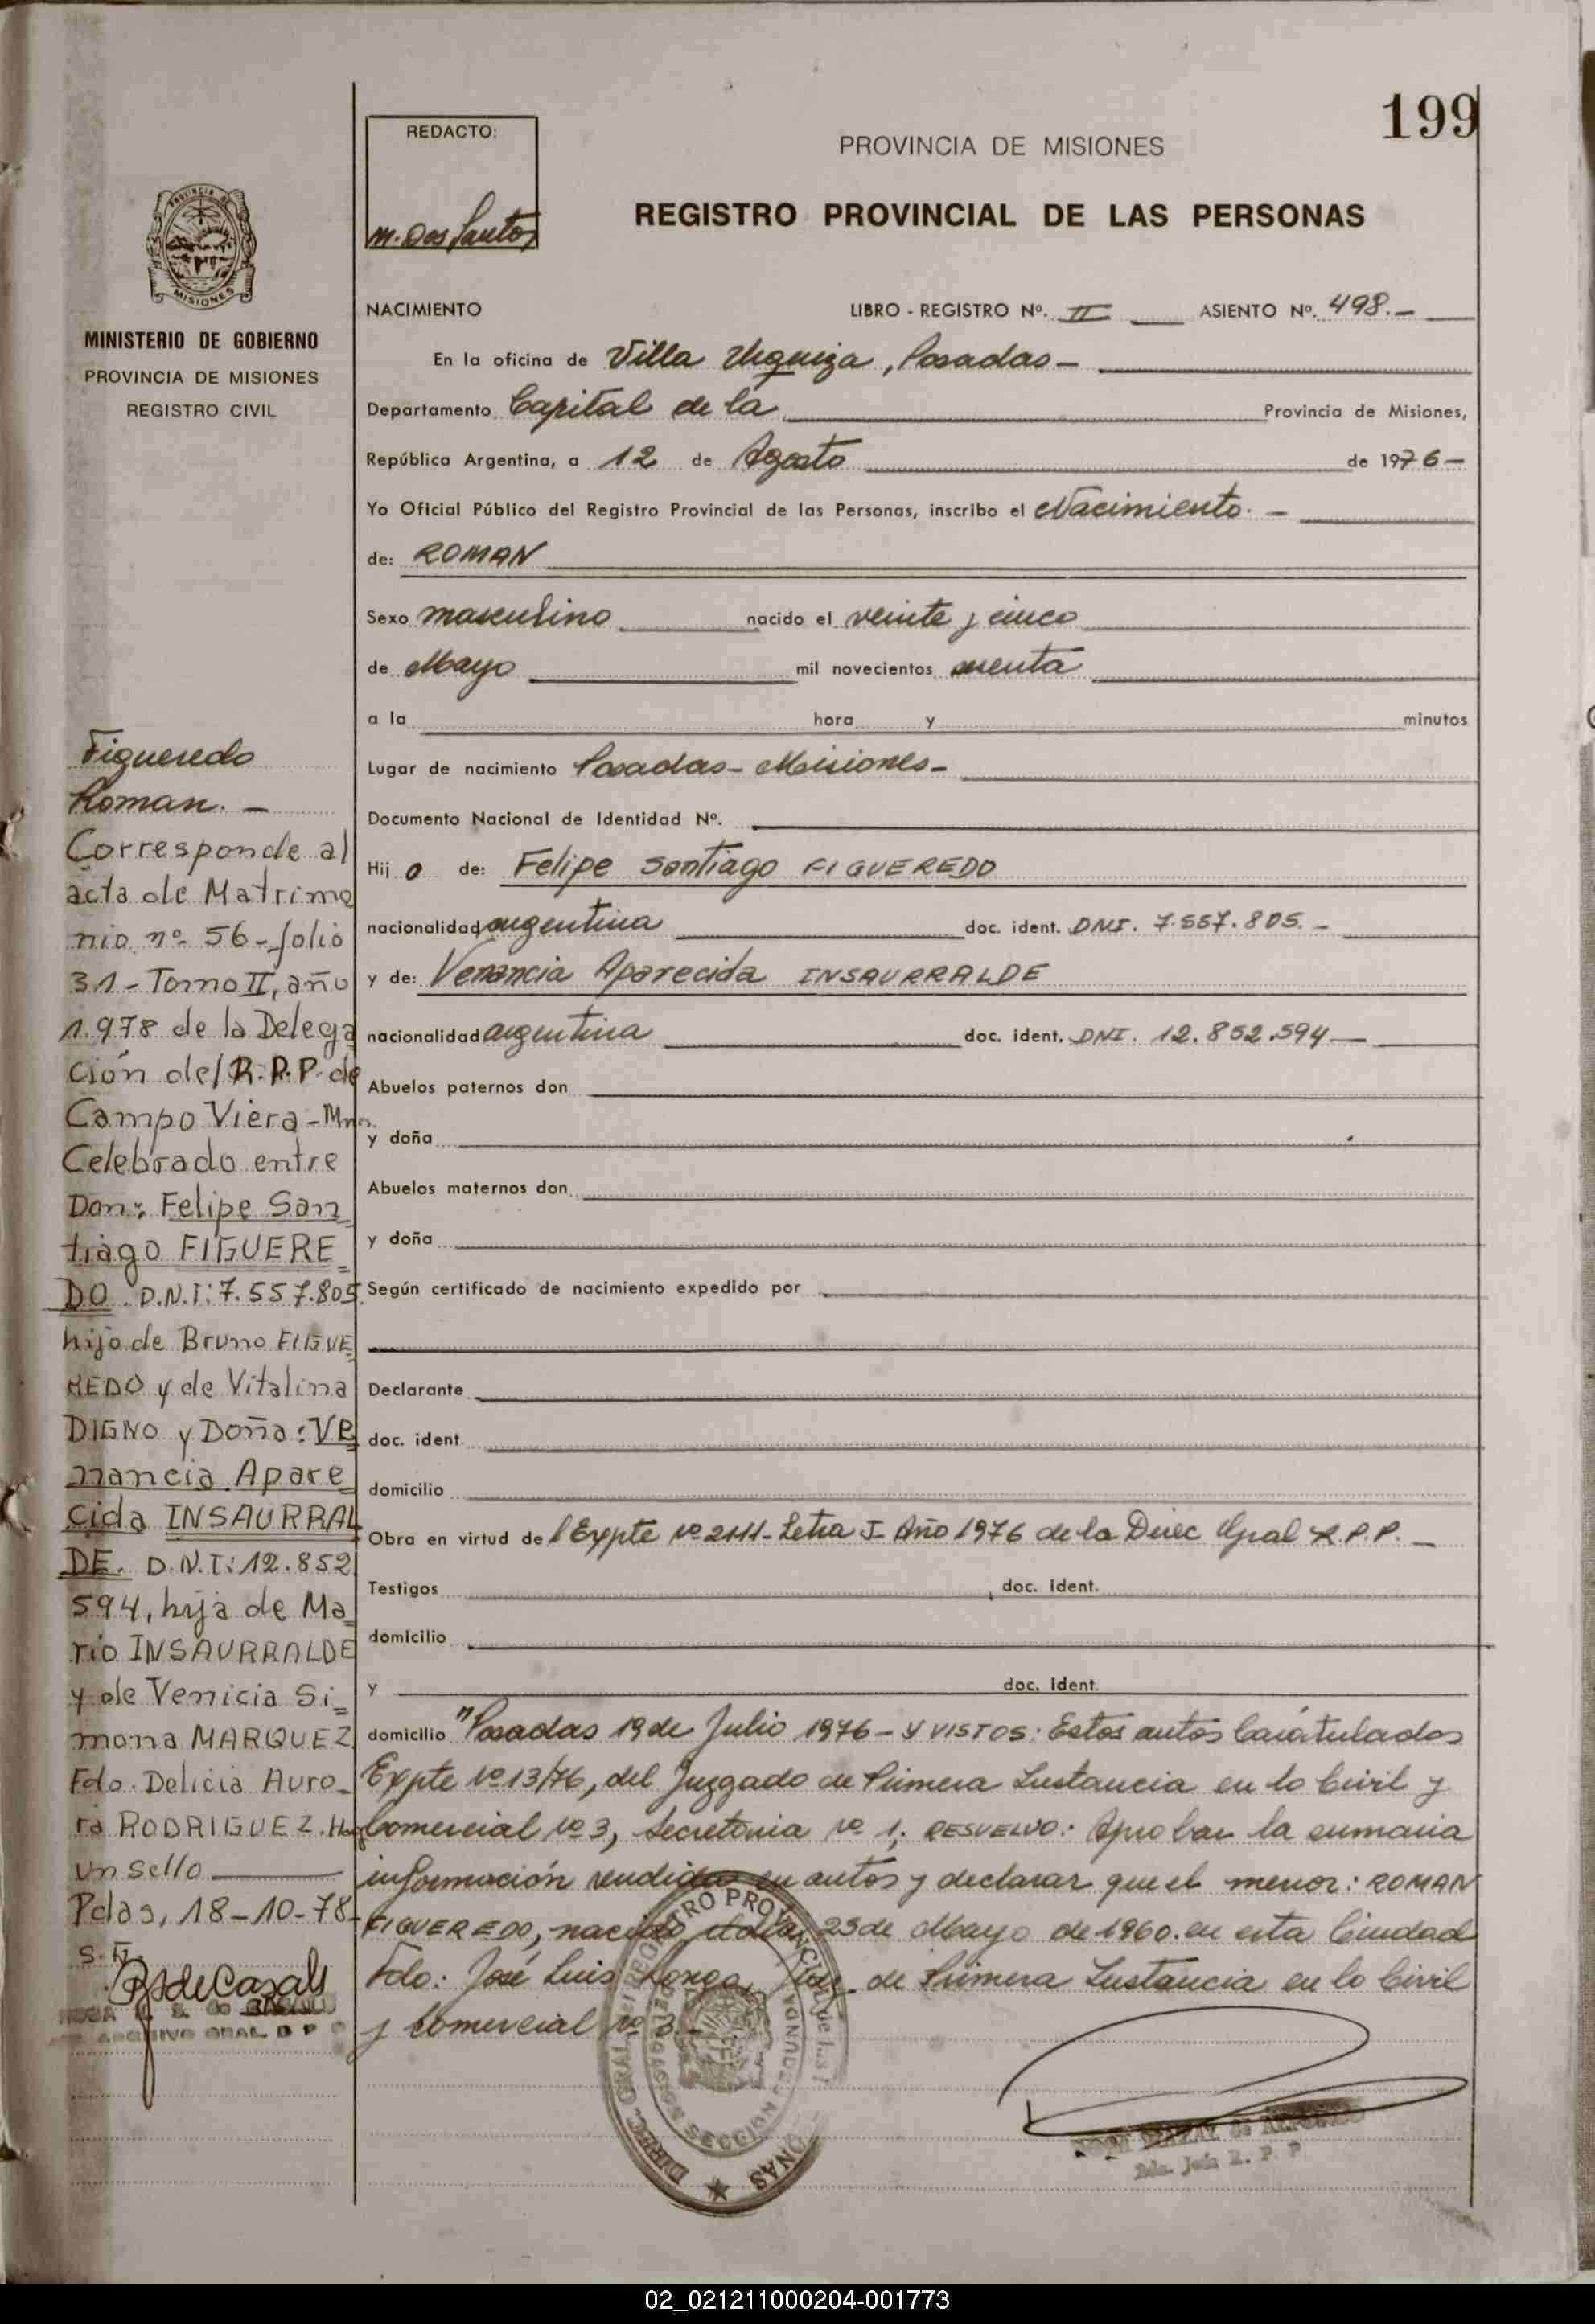 199
REDACTO:
M. Dos Santos
PROVINCIA DE MISIONES
REGISTRO PROVINCIAL DE LAS PERSONAS
PROVINCIA DE
MISIONES
MINISTERIO DE GOBIERNO
PROVINCIA DE MISIONES
REGISTRO CIVIL
NACIMIENTO LIBRO - REGISTRO Nº. II ASIENTO Nº. 498.-
En la oficina de Villa Urquiza, Posadas-
Departamento Capital de la Provincia de Misiones,
República Argentina, a 12 de Agosto de 1976-
Yo Oficial Público del Registro Provincial de las Personas, inscribo el Nacimiento.-
de: ROMAN
Sexo masculino nacido el veinte y cinco
de Mayo mil novecientos sesenta
a la hora y minutos
Lugar de nacimiento Posadas- Misiones-
Documento Nacional de Identidad Nº.
Hij o de: Felipe Santiago FIGUEREDO
nacionalidad argentina doc. ident. DNI. 7.557.805.-
y de: Venancia Aparecida INSAURRALDE
nacionalidad argentina doc. ident. DNI. 12.852.594-
Abuelos paternos don
y doña
Abuelos maternos don
y doña
Según certificado de nacimiento expedido por
Declarante
doc. ident.
domicilio
Obra en virtud de l Expte Nº 2111-Letra I- Año 1976 de la Direc Gral R.P.P.-
Testigos , doc. ident.
domicilio
y doc. ident.
domicilio "Posadas 19 de Julio 1976- Y VISTOS: Estos autos Caratulados
Expte Nº 13/76, del Juzgado de Primera Instancia en lo Civil y
Comercial Nº 3, Secretaria Nº 1; RESUELVO: Aprobar la sumaria
información rendida en autos y declarar que el menor: ROMAN
FIGUEREDO, nacido el día 25 de Mayo de 1960. en esta Ciudad
Fdo: José Luis Longo, Juez de Primera Instancia en lo Civil
y Comercial Nº 3-
Figueredo
Roman.-
Corresponde al
acta de Matrimo
nio nº 56-folio
31-Tomo II, año
1.978 de la Delega
ción del R.P.P. de
Campo Viera-Mnes.
Celebrado entre
Don: Felipe San
tiago FIGUERE=
DO. D.N.I: 7.557.805
hijo de Bruno FIGUE
REDO y de Vitalina
DIGNO y Doña: VE
nancia Apare
cida INSAURRAL
DE. D.N.I: 12.852
594, hija de Ma
rio INSAURRALDE
y de Venicia Si=
mona MARQUEZ
Fdo. Delicia Auro-
ra RODRIGUEZ. Hay
un sello
Pdas, 18-10-78
S.F.
ARCHIVO GRAL. R P P
DIREC. GRAL. del REGISTRO PROVINCIAL de las PERSONAS
SECCION
R. P. P.
02_021211000204-001773